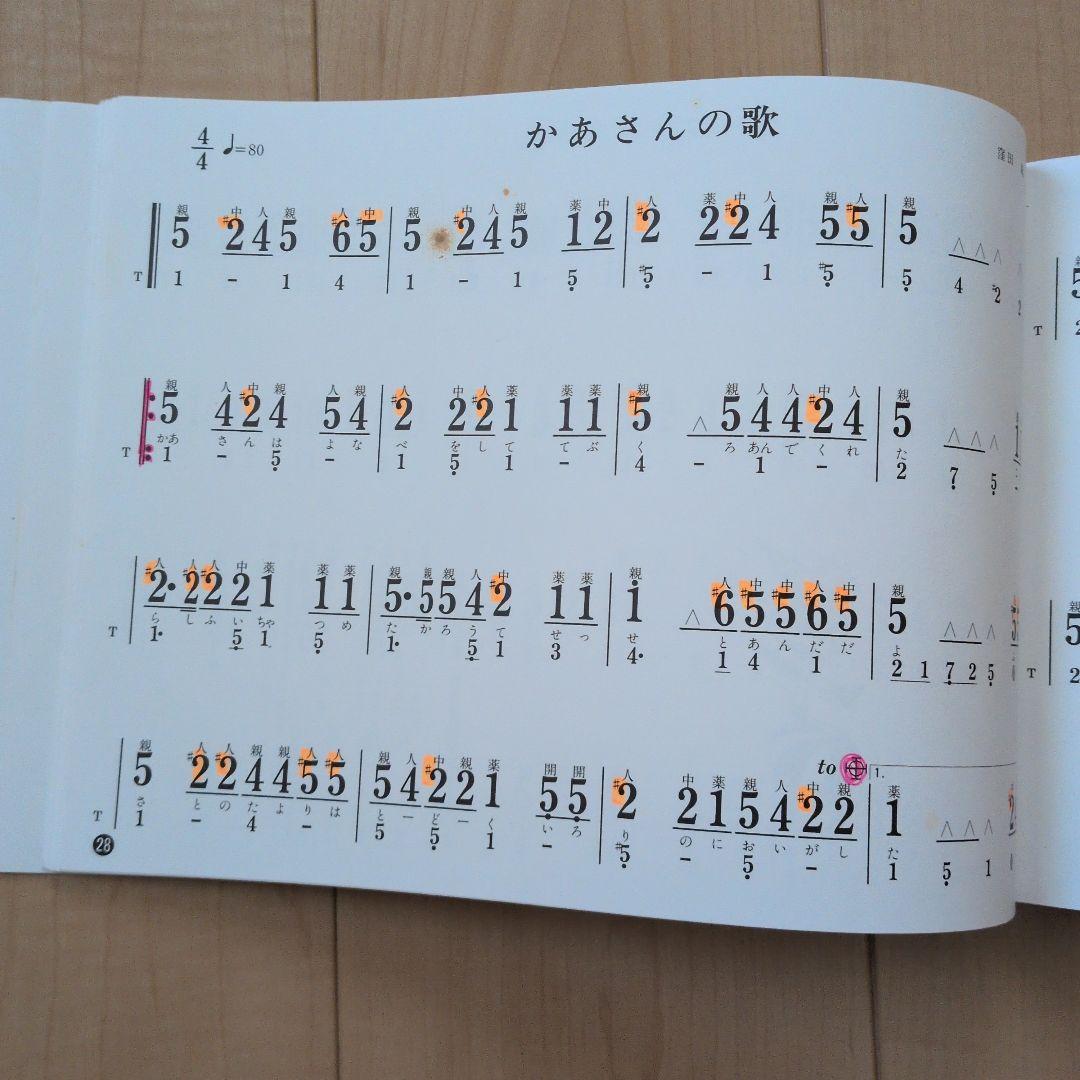 かあさんの歌
4/4 ♩=80
窪田
親 中 人 親 人 中 親 中 人 親 薬 中 人 薬 中 人 親 人 親
5 #2 4 5 #6 #5 | 5 #2 4 5 1 2 | #2 2 #2 4 5 #5 | 5 ∧ ∧ ∧
T 1 – 1 4 | 1 – 1 5 | #5 – 1 #5 | 5 4 #2 2
親 人 中 親 人 親 人 中 人 薬 薬 薬 親 親 人 人 中 人 親
5 4 #2 4 5 4 | #2 2 #2 1 1 1 | #5 ∧ 5 4 4 #2 4 | 5 ∧ ∧ ∧
かあ さ ん は よ な べ を し て て ぶ く ろ あん で く れ た
T 1 – 5 – | 1 5 1 – | 4 – 1 – | 2 7 5
人 人 人 中 薬 薬 薬 親 親 親 人 中 薬 薬 親 人 中 中 人 中 親
#2· #2 #2 2 1 1 1 | 5· 5 5 4 #2 1 1 | 1 ∧ #6 #5 #5 #6 #5 | 5 ∧ ∧ ∧
ら し ふ い ちゃ つ め た か ろ う て せ っ せ と あ ん だ だ よ
T 1· 5 1 5 | 1· 5 1 3 | 4· 1 4 1 | 2 1 7 2 5
親 人 人 親 親 人 人 親 人 中 親 薬 開 開 人 中 薬 親 人 中 親 薬
to 1.
5 #2 #2 4 4 #5 #5 | 5 4 #2 2 1 5 5 | #2 2 1 5 4 #2 2 | 1 ∧ ∧ ∧
さ と の た よ り は と ー ど ー く い ろ り の に お い が し た
T 1 – 4 – | 5 5 1 – | #5 – 5 – | 1 5 1
28
T
T